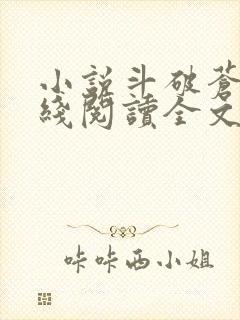 小説斗破蒼
綫閱讀全文
咔咔西小姐